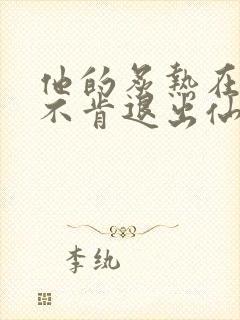 他的炙热在
不肯退出仙
李纨